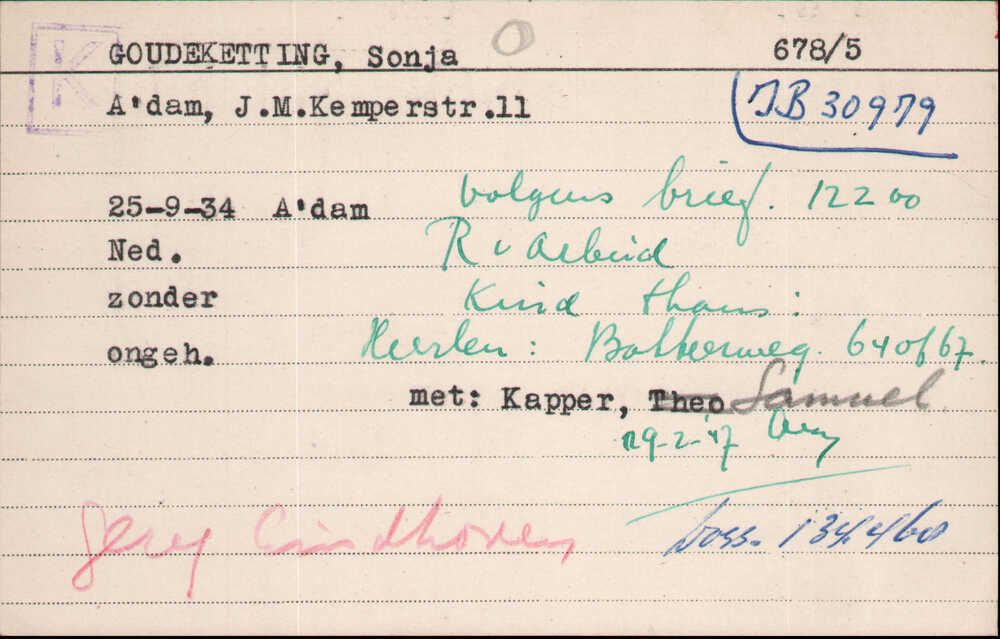 K
GOUDEKETTING, Sonja O 678/5
A'dam, J.M.Kemperstr.11 TB 30979
25-9-34 A'dam volgens brief. 12200
Ned. R v Arbeid
zonder Kind thans:
ongeh. Heerlen: 64 of 67.
met: Kapper, Theo Samuel
19-2-'47
gevg Eindhoven doss.